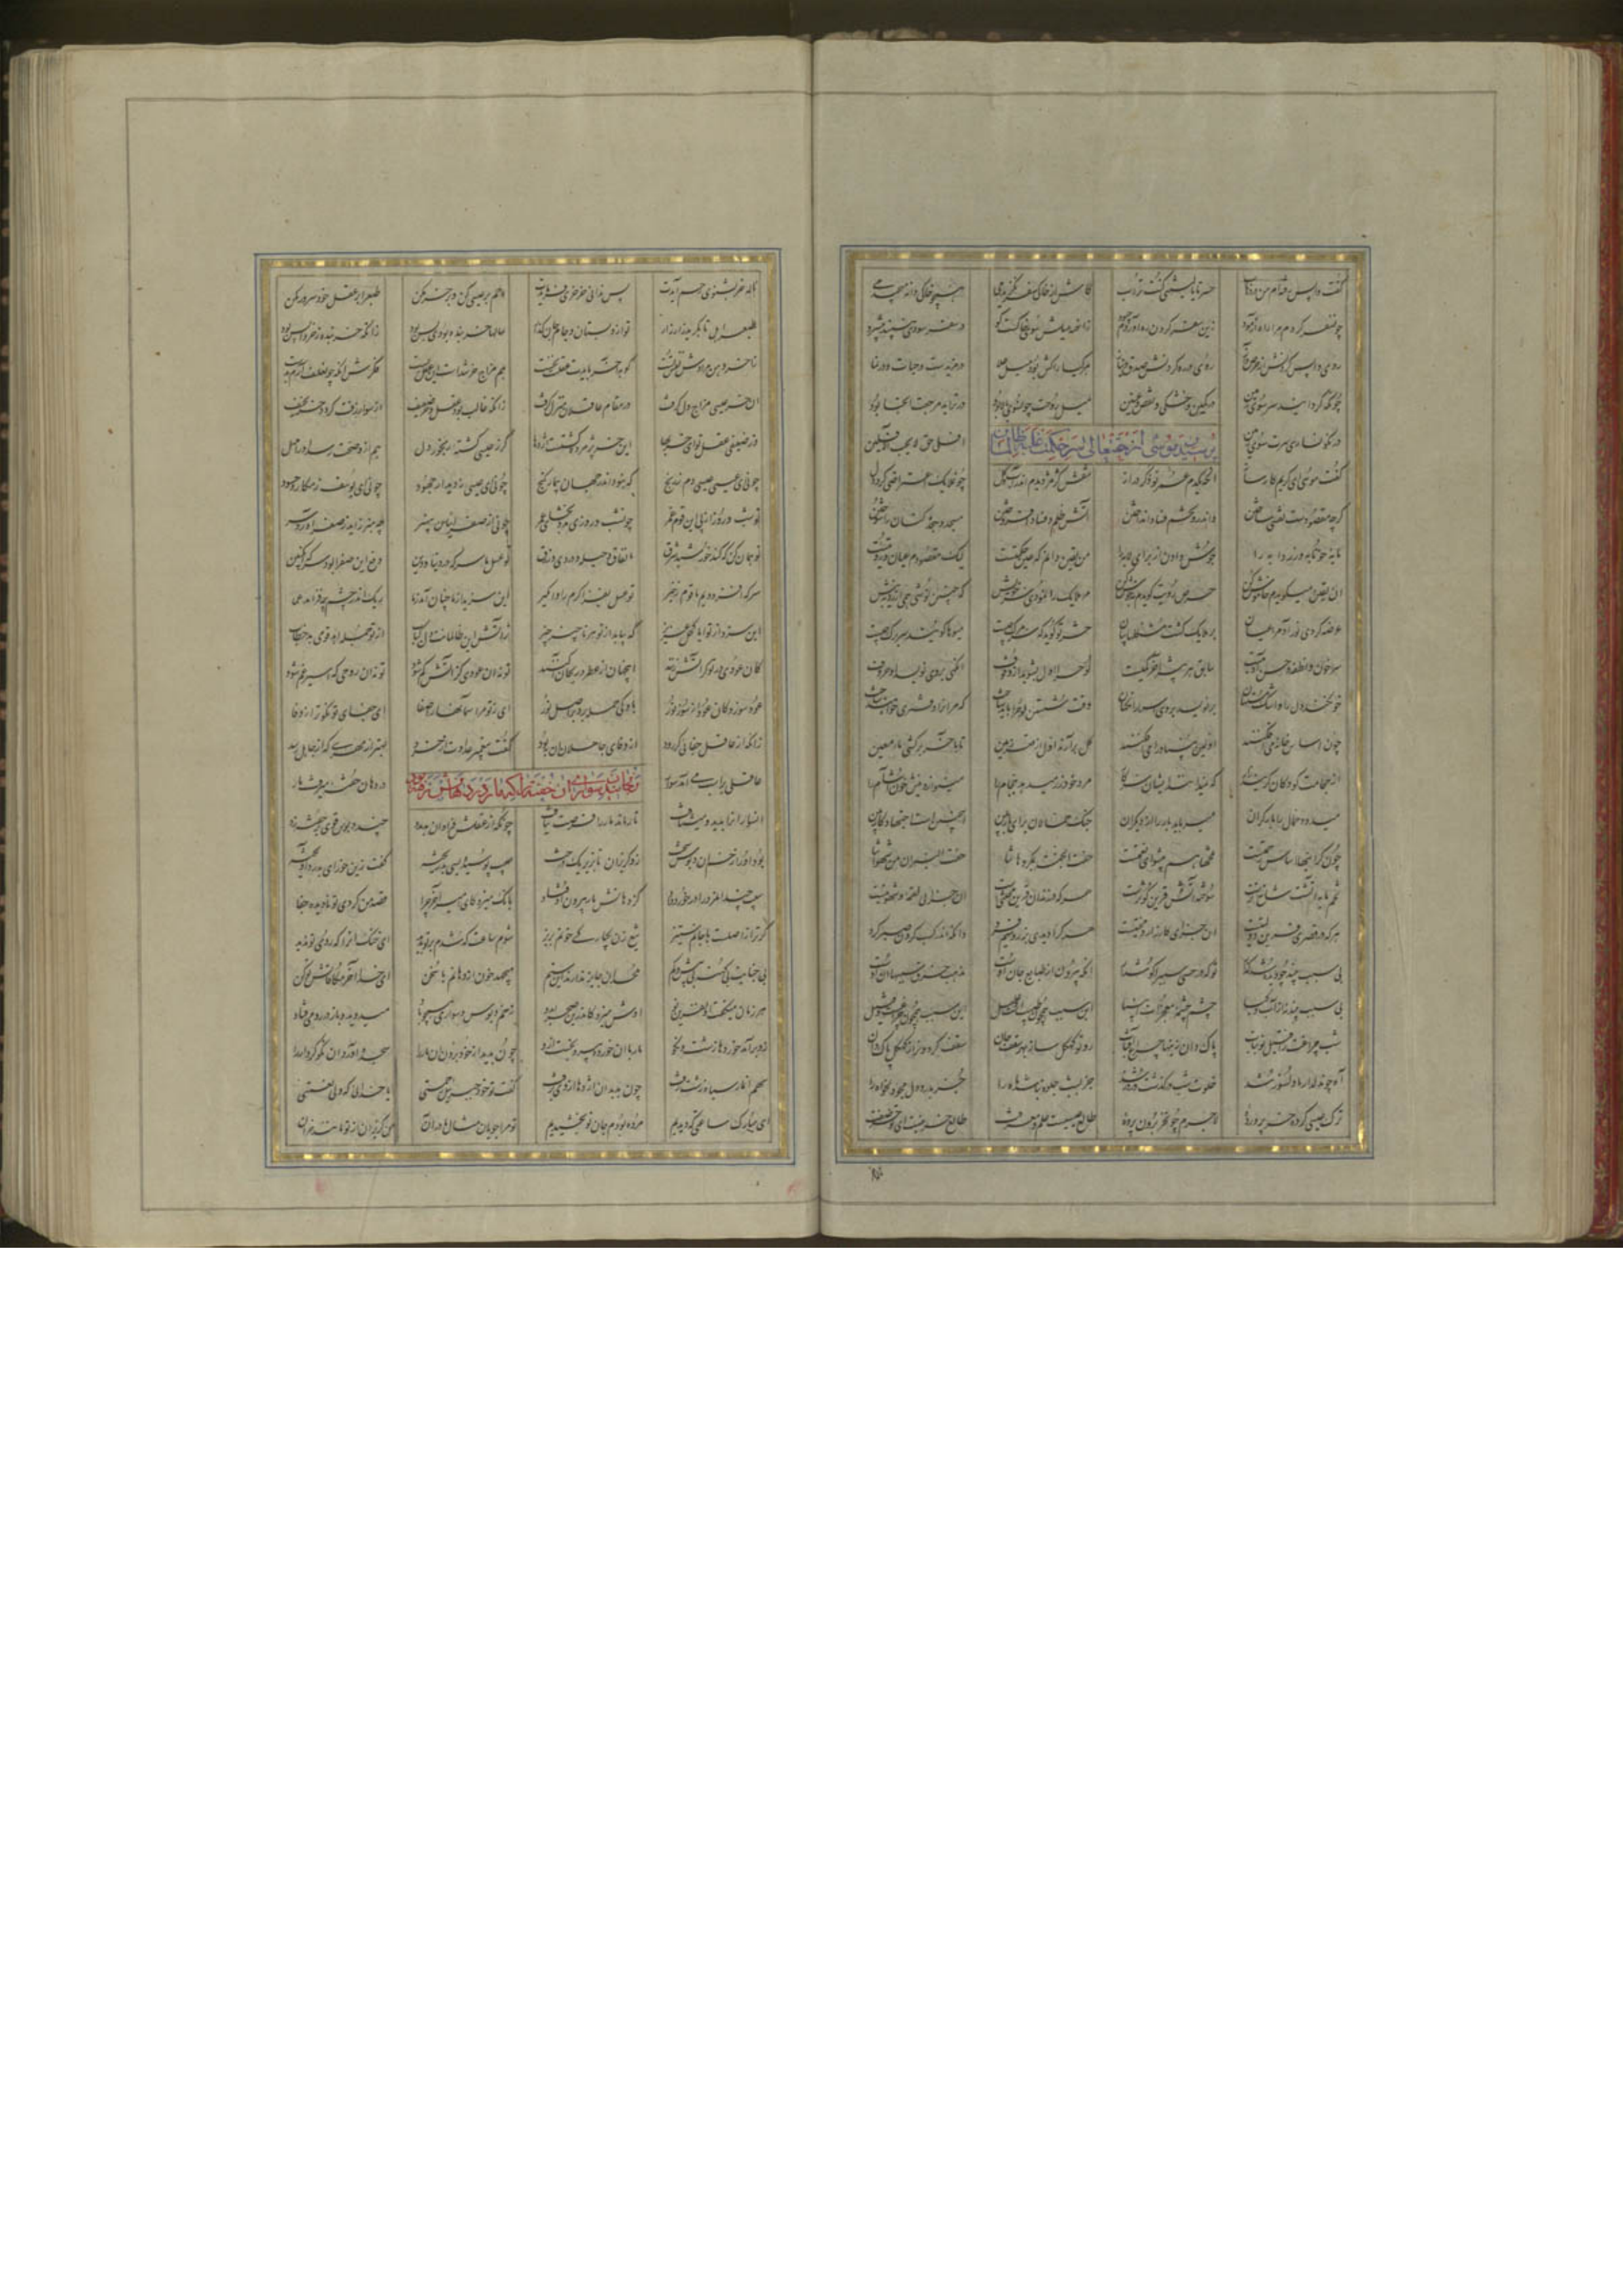 گفت واپس رفته‌ام من در ذهاب حسرتا یا لیتنی کنت تراب کاش از خاکی سفر نگزیدمی همچو خاکی دانه می‌چیدمی
چون سفر کردم مرا راه آزمود زین سفر کردن ره آوردم چه بود زان همه میلش سوی خاکست کو در سفر سودی نبیند پیش رو
روی واپس کردنش آن حرص و آز روی در ره کردنش صدق و نیاز هر گیا را کش بود میل علا در مزیدست و حیات و در نما
چونکه گردانید سر سوی زمین در کمی و خشکی و نقص و غبین میل روحت چون سوی بالا بود در تزاید مرجعت آنجا بود
ور نگونساری سرت سوی زمین آفلی حق لا یحب الآفلین
پرسیدن موسی از حق تعالی سر حکمت غلبه ظالمان
گفت موسی ای کریم کارساز ایکه یکدم ذکر تو عمر دراز نقش کژمژ دیدم اندر آب و گل چون ملایک اعتراضی کرد دل
که چه مقصودست نقشی ساختن واندرو تخم فساد انداختن آتش ظلم و فساد افروختن مسجد و سجده کنان را سوختن
مایه خونابه و زردابه را جوش دادن از برای لابه را من یقین دانم که عین حکمتست لیک مقصودم عیان و رویتست
آن یقین میگویدم خاموش کن حرص رویت گویدم نه جوش کن مر ملایک را نمودی سر خویش کین چنین نوشی همی ارزد به نیش
عرضه کردی نور آدم را عیان بر ملایک گشت مشکلها بیان حشر تو گوید که سر مرگ چیست میوها گویند سر برگ چیست
سر خون و نطفه حسن آدمیست سابق هر بیشیی آخر کمیست لوح را اول بشوید بی وقوف آنگهی بر وی نویسد او حروف
خون کند دل را و اشک مستهان بر نویسد بر وی اسرار آنگهان وقت شستن لوح را باید شناخت که مر آنرا دفتری خواهند ساخت
چون اساس خانه می‌افکنند اولین بنیاد را بر میکنند گل بر آرند اول از قعر زمین تا بآخر بر کشی ماء معین
از حجامت کودکان گریند زار که نمیدانند ایشان سر کار مرد خود زر میدهد حجام را مینوازد نیش خون آشام را
میدود حمال را بار گران میرباید بار را از دیگران جنگ حمالان برای بار بین این چنین است اجتهاد کاربین
چون گرانیها اساس راحتست تلخها هم پیشوای نعمتست حفت الجنة بمکروهاتنا حفت النیران من شهواتنا
تخم مایه آتشت شاخ ترست سوخته آتش قرین کوثرست هر که در زندان قرین محنتیست آن جزای لقمه و شهوتیست
هر که در قصری قرین دولتیست آن جزای کارزار و محنتیست هر کرا دیدی بزر و سیم فرد دانکه اندر کسب کردن صبر کرد
بی سبب بیند چو دیده شد گذار تو که در حسی سبب را گوش دار آنکه بیرون از طبایع جان اوست منصب خرق سببها آن اوست
بی سبب بیند نه از آب و گیا چشم چشمه معجزات انبیا این سبب همچون طبیبست و علیل این سبب همچون چراغست و فتیل
شب چراغت را فتیل نو بتاب پاک دان زینها چراغ آفتاب رو تو کهگل ساز بهر سقف خان سقف گردون را ز کهگل پاک دان
آه چو دلدار ما دلسوز شد خلوت شب در گذشت و روز شد جز بشب جلوه نباشد ماه را جز بدرد دل مجو دلخواه را
ترک عیسی کرده خر پرورده لاجرم چون خر برون پرده طالع عیسیست علم و معرفت طالع خر نیست ای تو خر صفت
ناله خر بشنوی رحم آیدت پس ندانی خر خری فرمایدت رحم بر عیسی کن و بر خر مکن طبع را بر عقل خود سرور مکن
طبع را هل تا بگرید زار زار تو ازو بستان و وام جان گذار سالها خر بنده بودی بس بود زانکه خر بنده ز خر واپس بود
هم مزاج خر شدست این عقل پست فکرش آنکه چون علف آرد بدست
آن خر عیسی مزاج دل گرفت در مقام عاقلان منزل گرفت زانکه غالب بود عقل و خر ضعیف از سوار زفت گردد خر نحیف
وز ضعیفی عقل تو ای خر بها این خر پژمرده گشتست اژدها گر ز عیسی گشته رنجور دل هم ازو صحت رسد او را مهل
چونی ای عیسی عیسی دم ز رنج که نبود اندر جهان بی مار گنج چونی ای عیسی ز دیدار جهود چونی ای یوسف ز مکار و حسود
تو شب و روز از پی این قوم غمر چون شب و روزی مدد بخشای عمر چونی از صفراییان بی هنر چه هنر زاید ز صفرا درد سر
تو همان کن که کند خورشید شرق با نفاق و حیله و دزدی و زرق تو عسل ما سرکه در دنیا و دین دفع این صفرا بود سرکنگبین
سرکه افزودیم ما قوم زحیر تو عسل بفزا کرم را وا مگیر این سزید از ما چنان آمد ز ما ریگ اندر چشم چه افزاید عمی
این سزد از تو ایا کحل عزیز که بیابد از تو هر ناچیز چیز ز آتش این ظالمانت دل کباب از تو جمله اهد قومی بد خطاب
کان عودی در تو گر آتش زنند این جهان از عطر و ریحان آکنند تو نه آن عودی کز آتش کم شود تو نه آن روحی که اسیر غم شود
عود سوزد کان عود از سوز دور باد کی حمله برد بر اصل نور ای ز تو مر آسمانها را صفا ای جفای تو نکوتر از وفا
زانکه از عاقل جفایی گر رود از وفای جاهلان آن به بود گفت پیغمبر عداوت از خرد بهتر از مهری که از جاهل رسد
رنجانیدن سواری آن خفته را که مار در دهانش رفته بود
عاقلی بر اسب می‌آمد سوار در دهان خفته میرفت مار
آن سوار آنرا بدید و میشتافت تا رماند مار را فرصت نیافت چونکه از عقلش فراوان بد مدد چند دبوسی قوی بر خفته زد
برد او را زخم آن دبوس سخت زو گریزان تا بزیر یک درخت سیب پوسیده بسی بد ریخته گفت ازین خور ای بدرد آویخته
سیب چندان مر ورا در خورد داد کز دهانش باز بیرون می‌فتاد بانگ میزد کای امیر آخر چرا قصد من کردی تو نادیده جفا
گر ترا ز اصلست با جانم ستیز تیغ زن یکبارگی خونم بریز شوم ساعت که شدم بر تو پدید ای خنک آنرا که روی تو ندید
بی جنایت بی گنه بی بیش و کم ملحدان جایز ندارند این ستم میجهد خون از دهانم با سخن ای خدا آخر مکافاتش تو کن
هر زمان میگفت او نفرین نو اوش میزد کاندرین صحرا بدو زخم دبوس و سوار همچو باد میدوید و باز در رو میفتاد
زو بر آمد خوردها زشت و نکو مار با آن خورده بیرون جست ازو چون بدید از خود برون آن مار را سجده آورد آن نکو کردار را
سهم آن مار سیاه زشت زفت چون بدید آن دردها از وی برفت گفت تو خود جبریل رحمتی یا خدایی که ولی نعمتی
ای مبارک ساعتی که دیدیم مرده بودم جان نو بخشیدیم تو مرا جویان مثال مادران من گریزان از تو مانند خران